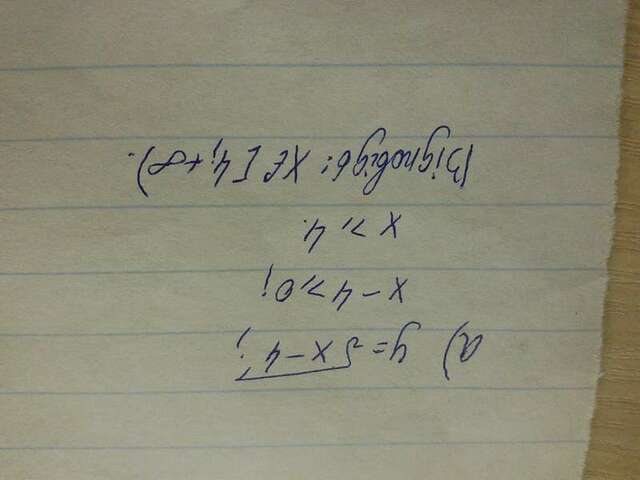 а) y = √x-4;
x-4 ⩾ 0;
x ⩾ 4.
Відповідь: x ∈ [4; +∞).